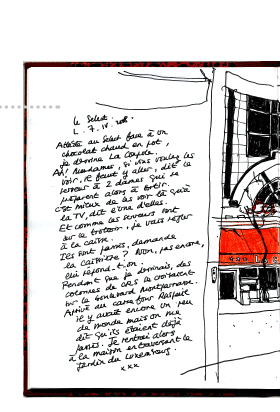 le Select.
L. 7. IV. 2008.
Attablée au Select face à un
chocolat chaud en pot,
je dessine La Coupole.
Ah! Mesdames, si vous voulez les
voir, il faut y aller, dit le
serveur à 2 dames qui se
préparent alors à sortir.
C'est mieux de les voir là qu'à
la TV, dit l'une d'elles.
Et comme les coureurs sont
sur le trottoir, je vais régler
à la caisse.
Ils sont passés, demande
la caissière? Non, pas encore,
lui répond-t-on.
Pendant que je dormais, des
colonnes de CRS se croisaient
sur le boulevard Montparnasse.
Arrivée au carrefour Raspail
il y avait encore un peu
de monde mais on me
dit qu'ils étaient déjà
passés. Je rentrai alors
à la maison en traversant le
Jardin du Luxembourg.
xxx